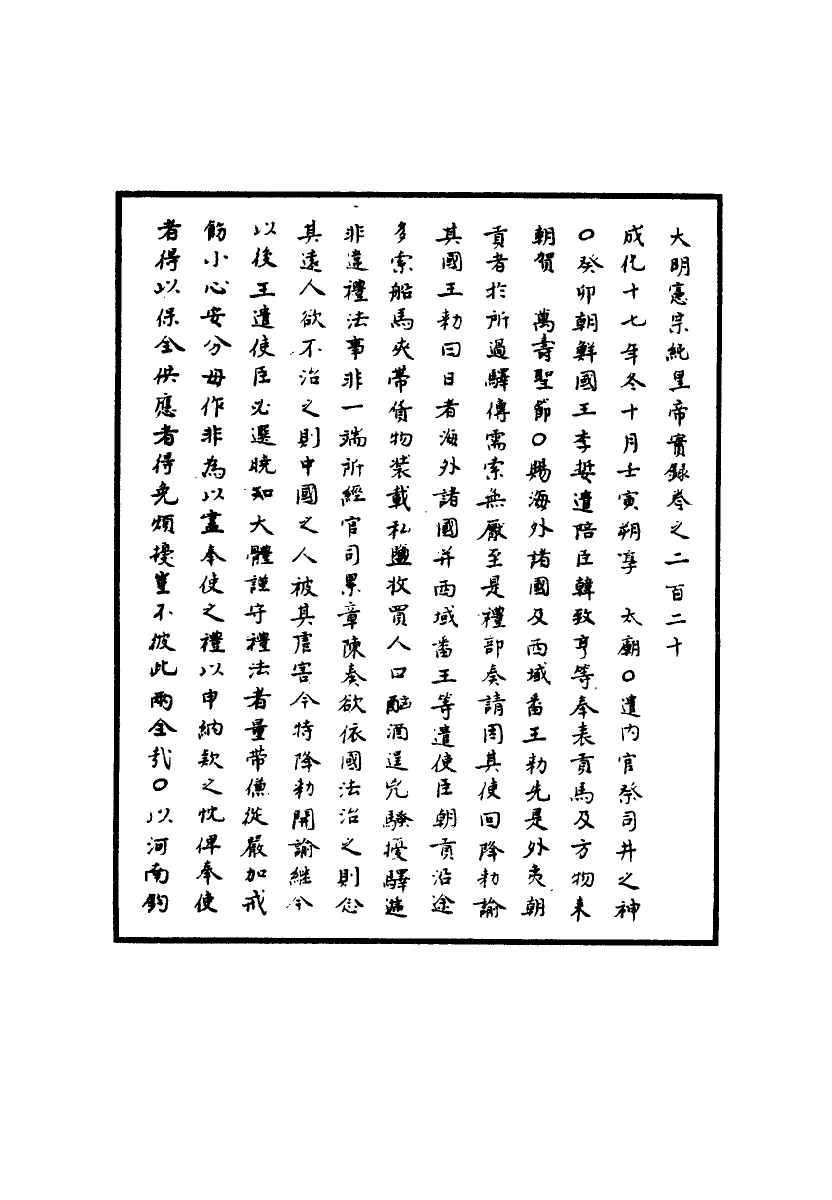 大明憲宗純皇帝實録卷之二百二十
成化十七年冬十月壬寅朔享　太廟○遣内官祭司井之神
○癸卯朝鮮國王李娎遣陪臣韓致亨等奉表貢馬及方物来
朝賀　萬壽聖節○賜海外諸國及西域番王勑先是外夷朝
貢者於所過驛傳需索無厭至是禮部奏請因其使回降勑諭
其國王勑曰日者海外諸國并西域番王等遣使臣朝貢沿途
多索船馬夾帶貨物装載私鹽收買人口酗酒逞兇騷擾驛逓
非違禮法事非一端所經官司累章陳奏欲依國法治之則念
其遠人欲不治之則中國之人被其虐害今特降勑開諭継今
以後王遣使臣必選曉知大體謹守禮法者量帶傔從嚴加戒
飭小心安分毋作非為以盡奉使之禮以申納款之忱俾奉使
者得以保全供應者得免煩擾豈不彼此兩全哉○以河南鈞